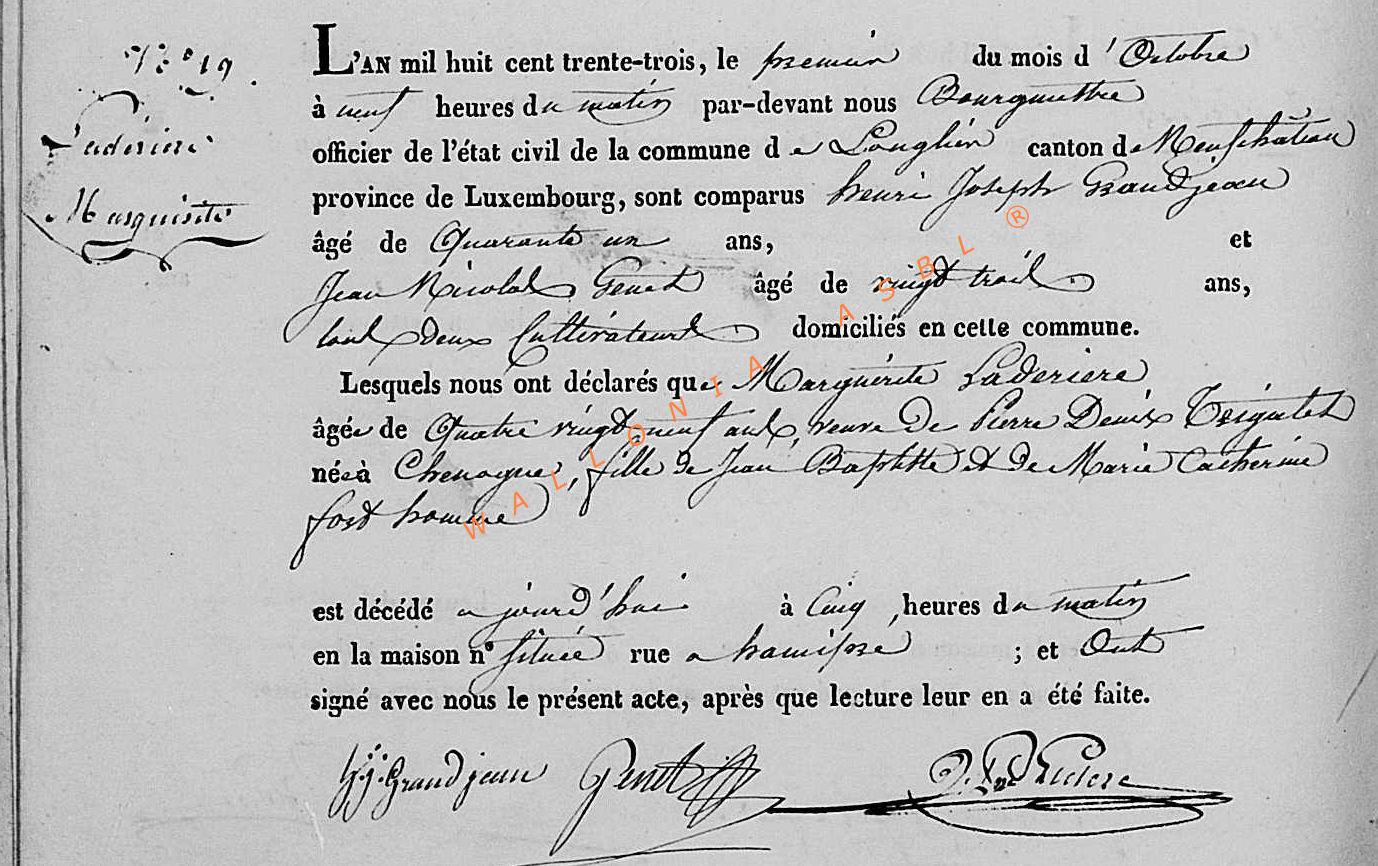 N° 19.
Laderiere
Marguerite
L'AN mil huit cent trente-trois, le premier du mois d'Octobre
à neuf heures du matin par-devant nous Bourguettre
officier de l'état civil de la commune de Longlier canton de Neufchâteau
province de Luxembourg, sont comparus henri Joseph Grandjean
âgé de Quarante un ans, et
Jean Nicolas Genet âgé de vingt trois ans,
tous deux Cultivateurs domiciliés en cette commune.
Lesquels nous ont déclarés que Marguérite Laderiere
âgée de Quatre vingt neuf ans, veuve de Pierre Denis
née à Chenogne, fille de Jean Baptiste et de Marie Catherine
fort homme
est décédé aujourd'hui à Cinq heures du matin
en la maison n° située rue a hamipré ; et Ont
signé avec nous le présent acte, après que lecture leur en a été faite.
h.j. Grandjean Genet
WALLONIA ASBL ®